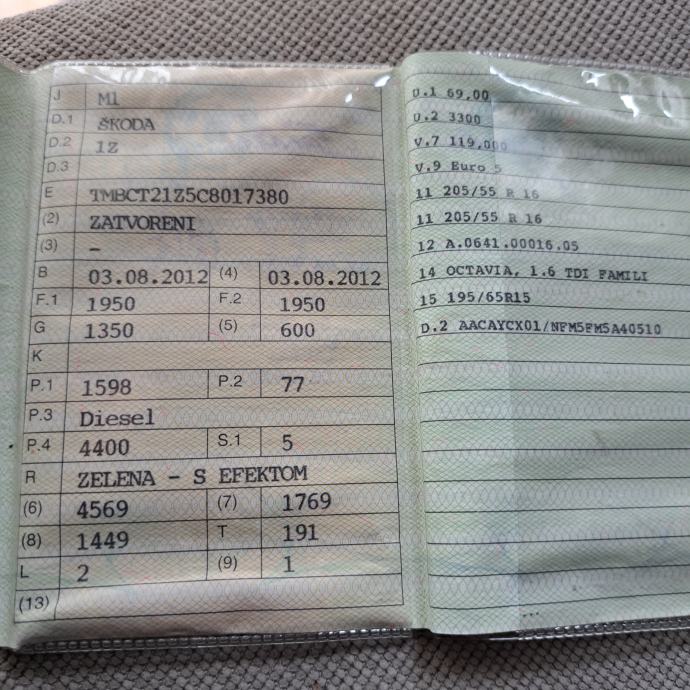 J M1
D.1 ŠKODA
D.2 1Z
D.3
E TMBCT21Z5C8017380
(2) ZATVORENI
(3) –
B 03.08.2012 (4) 03.08.2012
F.1 1950 F.2 1950
G 1350 (5) 600
K
P.1 1598 P.2 77
P.3 Diesel
P.4 4400 S.1 5
R ZELENA – S EFEKTOM
(6) 4569 (7) 1769
(8) 1449 T 191
L 2 (9) 1
(13)
U.1 69,00
U.2 3300
V.7 119,000
V.9 Euro 5
11 205/55 R 16
11 205/55 R 16
12 A.0641.00016.05
14 OCTAVIA, 1.6 TDI FAMILI
15 195/65R15
D.2 AACAYCX01/NFM5FM5A40510
...